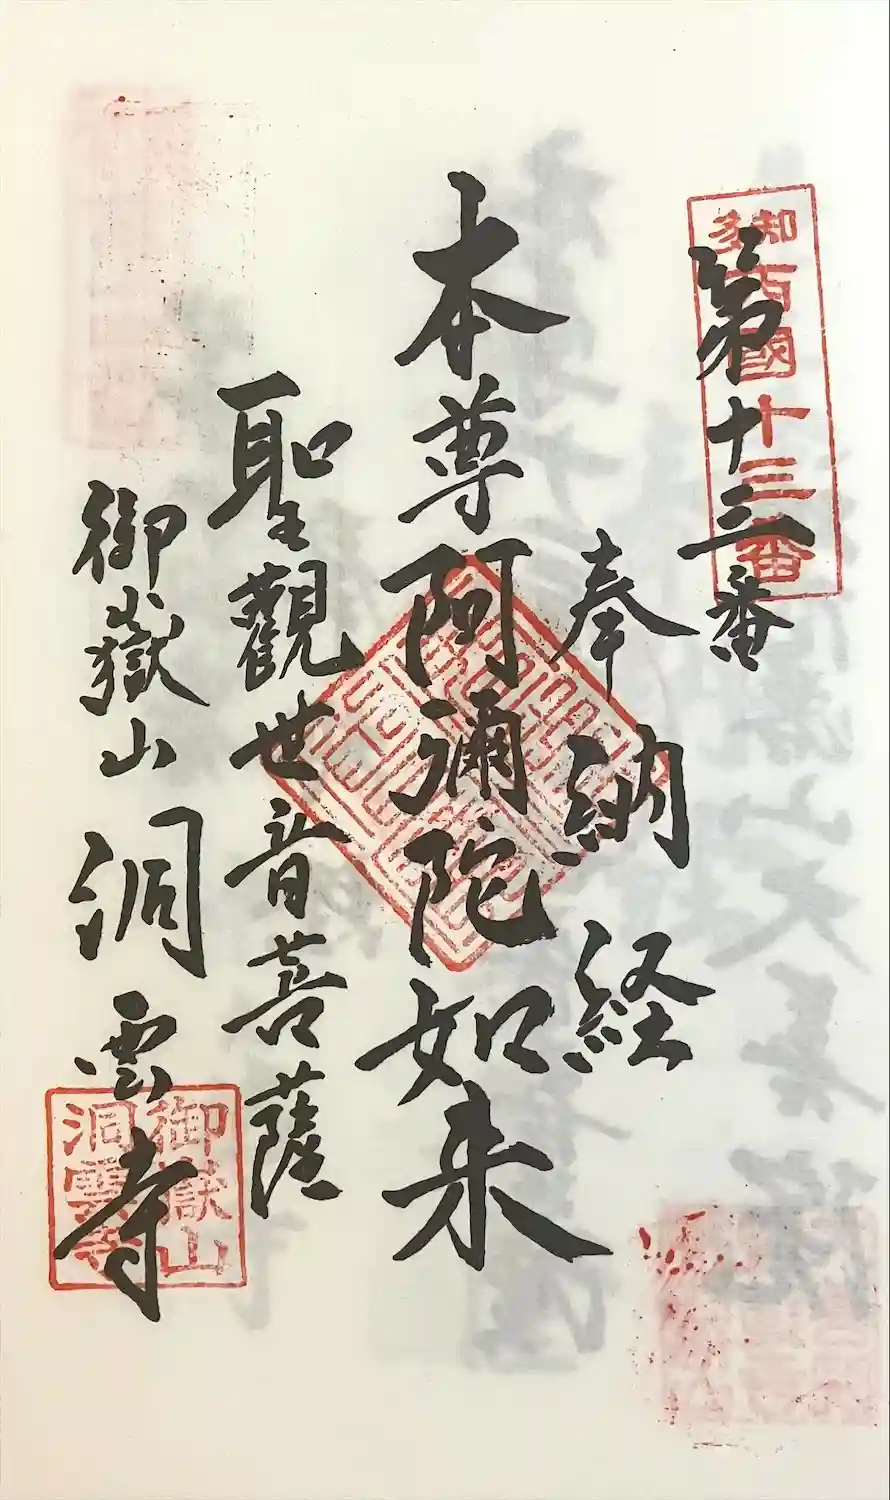 第十三番
奉納経
本尊阿彌陀如来
聖觀世音菩薩
御嶽山洞雲寺
國十三番
御嶽山
洞雲寺